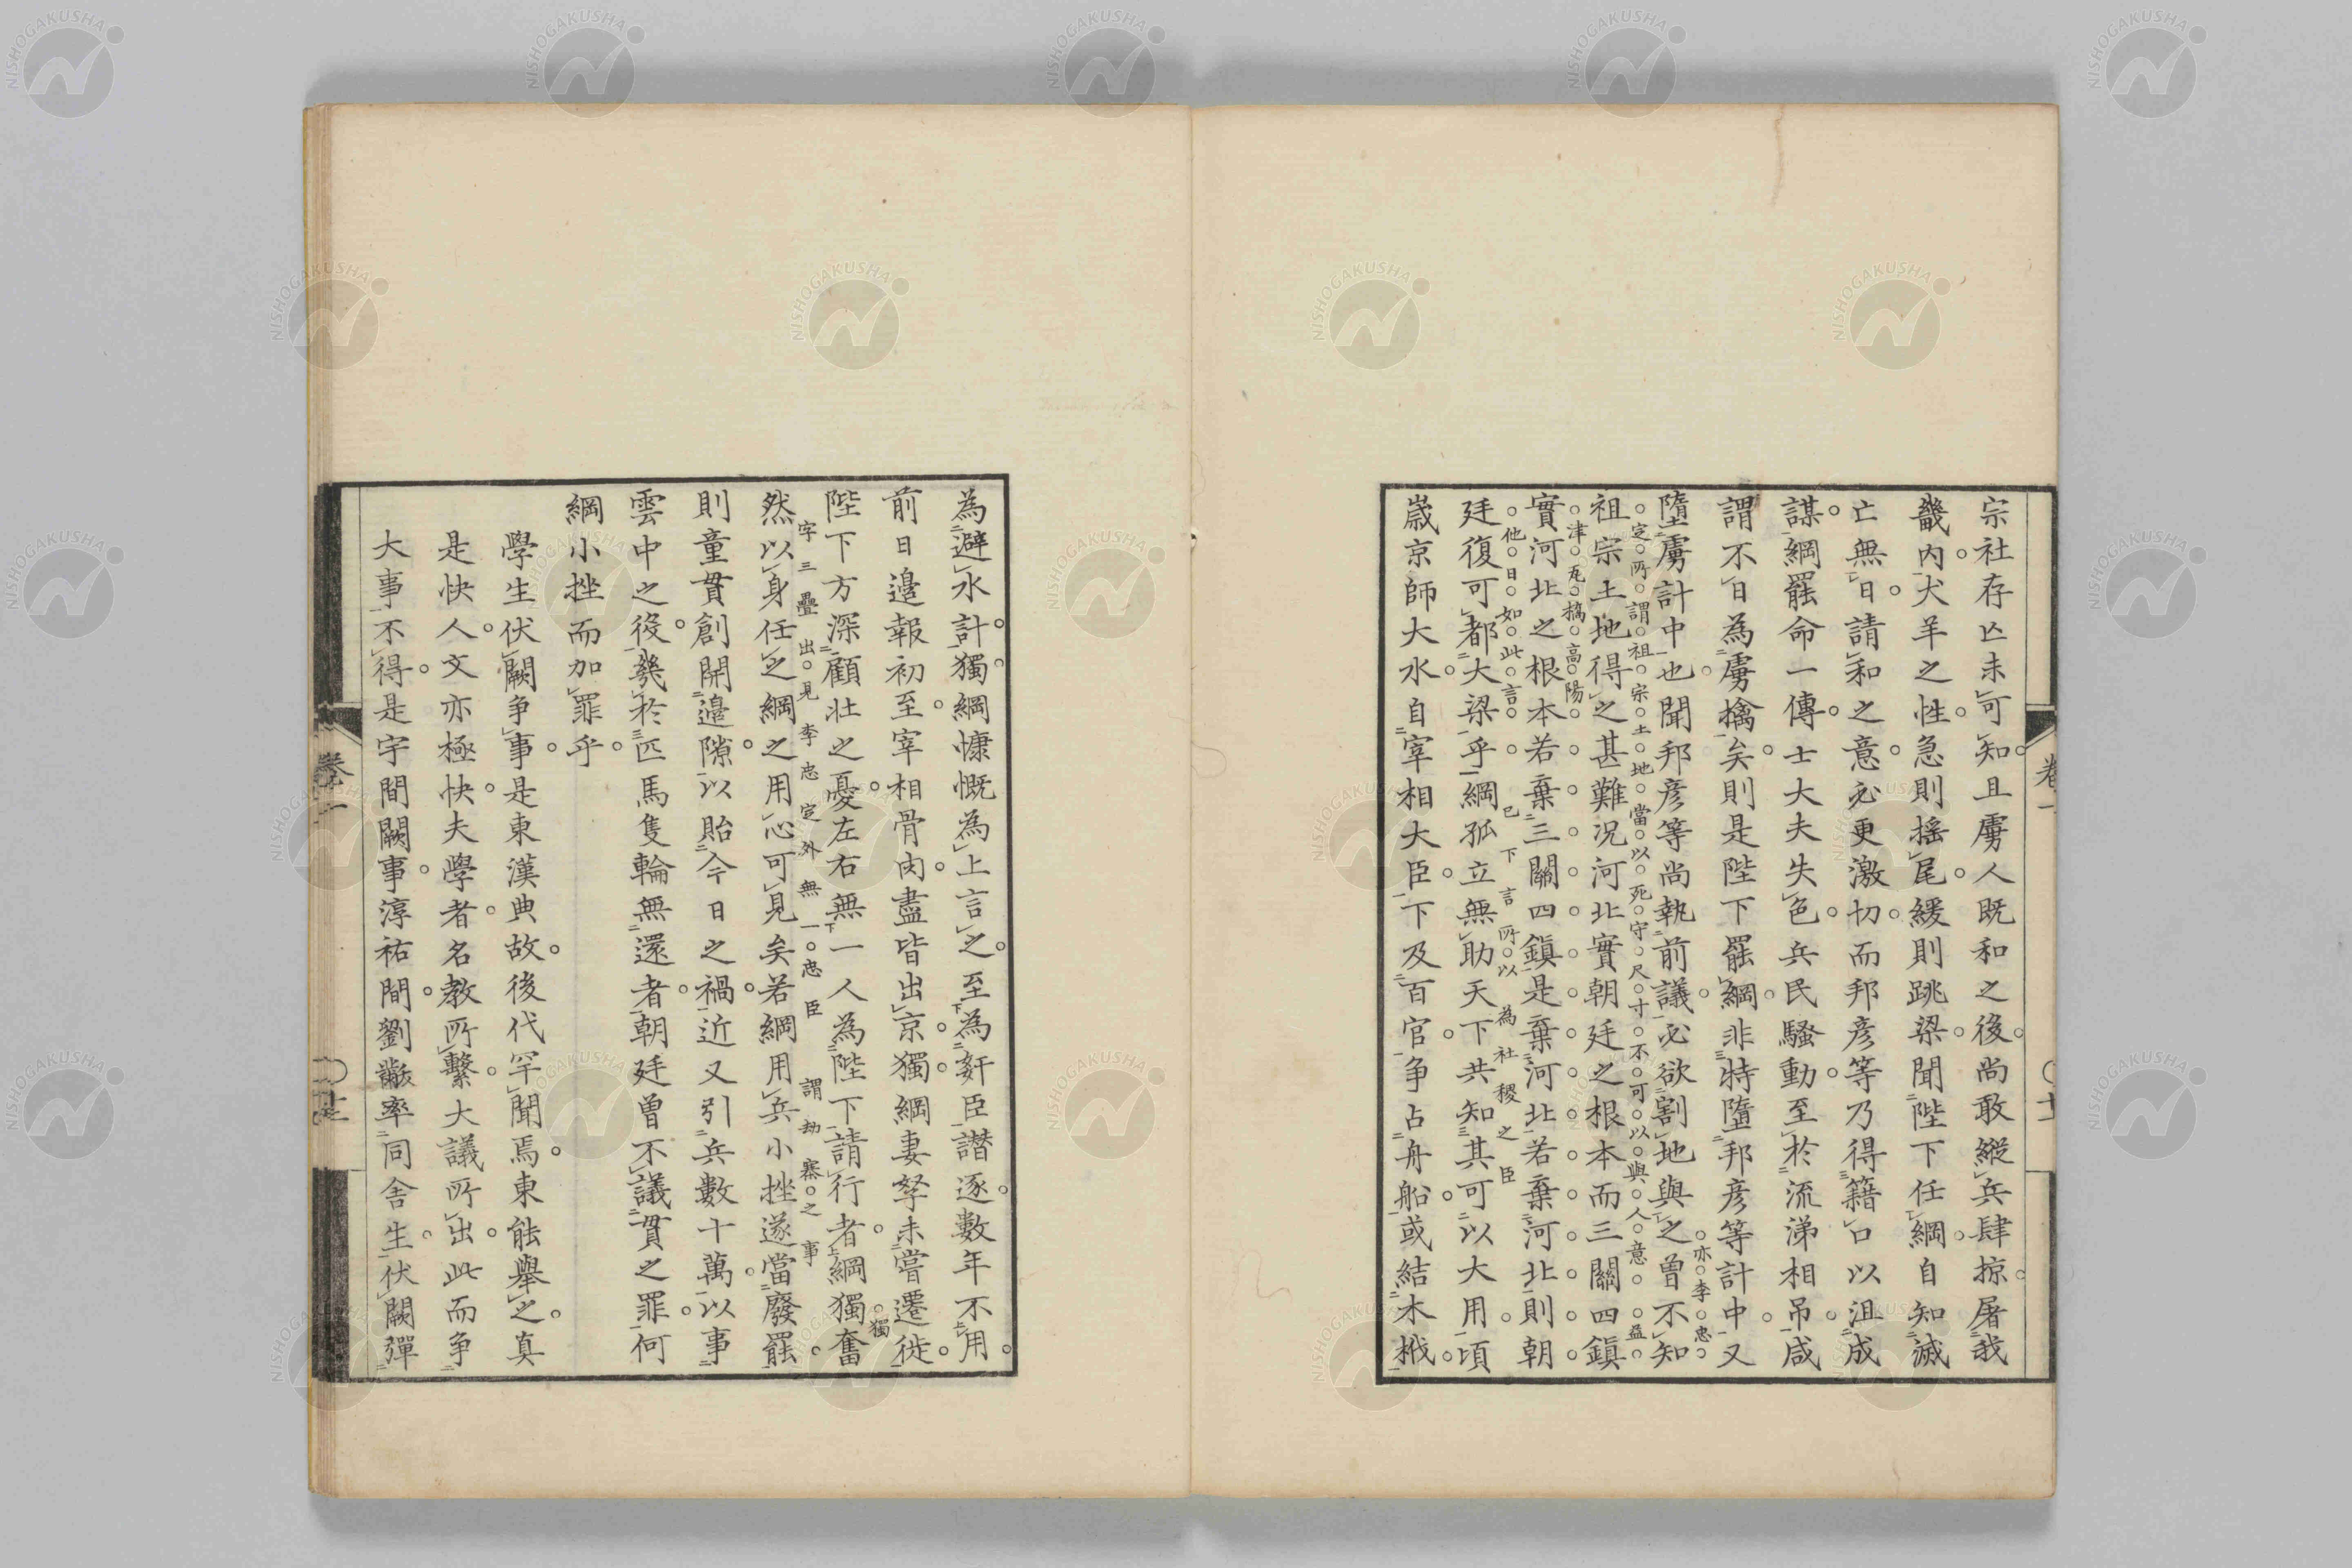 宗社存亾未可知且虜人既和之後尚敢縱兵肆掠屠我
畿内犬羊之性急則搖尾緩則跳梁聞陛下任綱自知滅
亡無日請和之意必更激切而邦彦等乃得籍口以沮成
謀綱罷命一傳士大夫失色兵民騷動至於流涕相吊咸
謂不日為虜擒矣則是陛下罷綱非特墮邦彦等計中又
亦李忠
墮虜計中也聞邦彦等尚執前議必欲割地與之曾不知
定所謂祖宗土地當以死守尺寸不可以與人意益
祖宗土地得之甚難況河北實朝廷之根本而三關四鎮
津瓦橋高陽
實河北之根本若棄三關四鎮是棄河北若棄河北則朝
他日如此言
已下言所以為社稷之臣
廷復可都大梁乎綱孤立無助天下共知其可以大用頃
嵗京師大水自宰相大臣下及百官争占舟船或結木栰
為避水計獨綱慷慨為上言之至為奸臣譖逐數年不用
前日邉報初至宰相骨肉盡皆出京獨綱妻孥未嘗遷徙
獨
陛下方深顧壯之憂左右無一人為陛下請行者綱獨奮
字三疊出見李忠定外無一忠臣
謂劫寨之事
然以身任之綱之用心可見矣若綱用兵小挫遂當廢罷
則童貫創開邉隙以貽今日之禍近又引兵數十萬以事
雲中之役幾於匹馬隻輪無還者朝廷曾不議貫之罪何
綱小挫而加罪乎
學生伏闕争事是東漢典故後代罕聞焉東能舉之真
是快人文亦極快夫學者名教所繫大議所出此而争
大事不得是宇間闕事淳祐間劉黻率同舍生伏闕彈
卷一
卷一
NISHOGAKUSHA